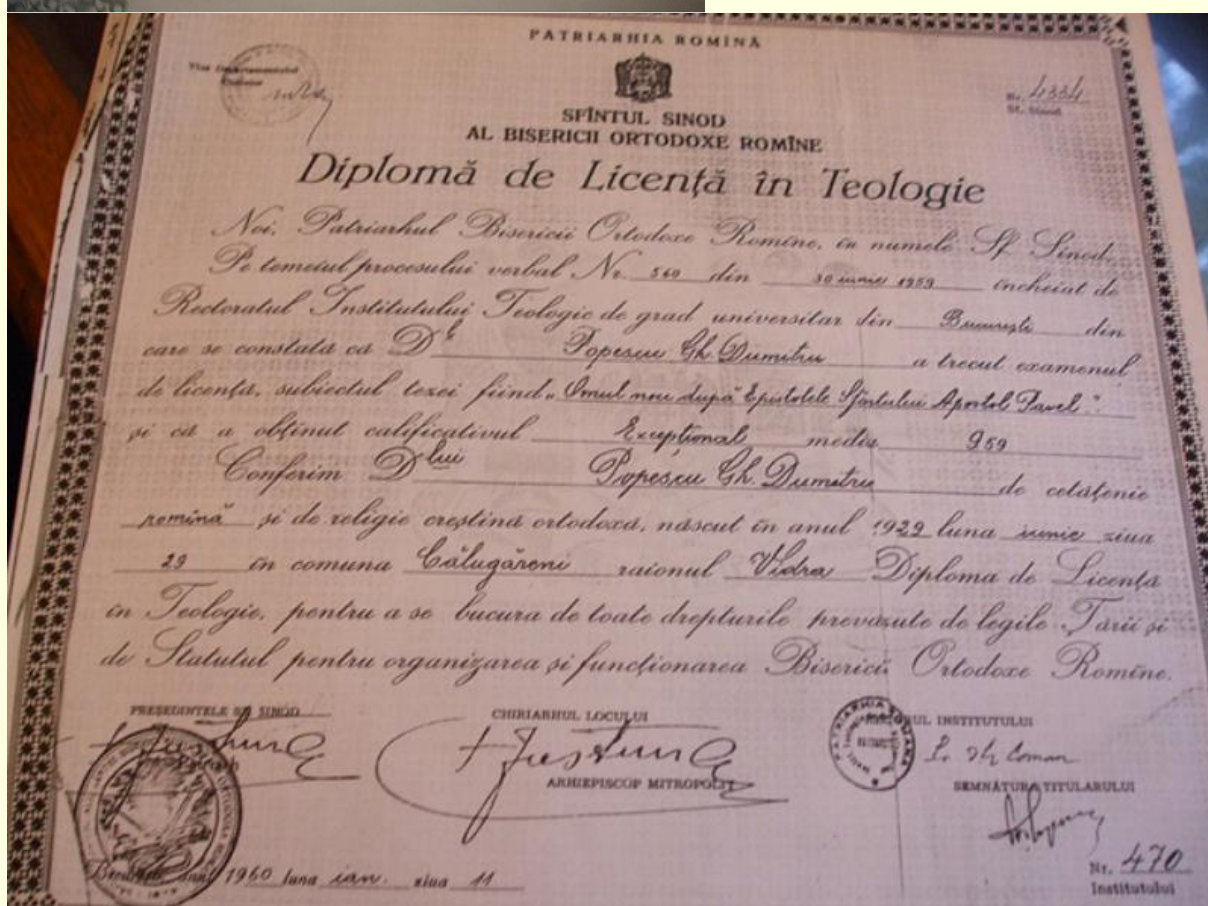 PATRIARHIA ROMÎNĂ
Viza Departamentului
Cultelor
Nr. 4334
Sf. Sinod
SFÎNTUL SINOD
AL BISERICII ORTODOXE ROMÎNE
Diplomă de Licență în Teologie
Noi, Patriarhul Bisericii Ortodoxe Romîne, în numele Sf. Sinod,
Pe temeiul procesului verbal Nr. 560 din 30 iunie 1959 încheiat de
Rectoratul Institutului Teologic de grad universitar din București din
care se constată că Dl Popescu Gh. Dumitru a trecut examenul
de licență, subiectul tezei fiind „Omul nou după Epistolele Sfîntului Apostol Pavel".
și că a obținut calificativul Excepțional media 9 59
Conferim Dlui Popescu Gh. Dumitru de cetățenie
romînă și de religie creștină ortodoxă, născut în anul 1929 luna iunie ziua
29 în comuna Călugăreni raionul Vidra Diploma de Licență
în Teologie, pentru a se bucura de toate drepturile prevăzute de legile Țării și
de Statutul pentru organizarea și funcționarea Bisericii Ortodoxe Romîne.
PREȘEDINTELE SF. SINOD
CHIRIARHUL LOCULUI
INSTITUTULUI
† Justinian
† Justinian
Pr. I. G. Coman
ARHIEPISCOP MITROPOLIT
PATRIARHIA ROMANA
SEMNĂTURA TITULARULUI
București, anul 1960 luna ian. ziua 11
Nr. 470
Institutului